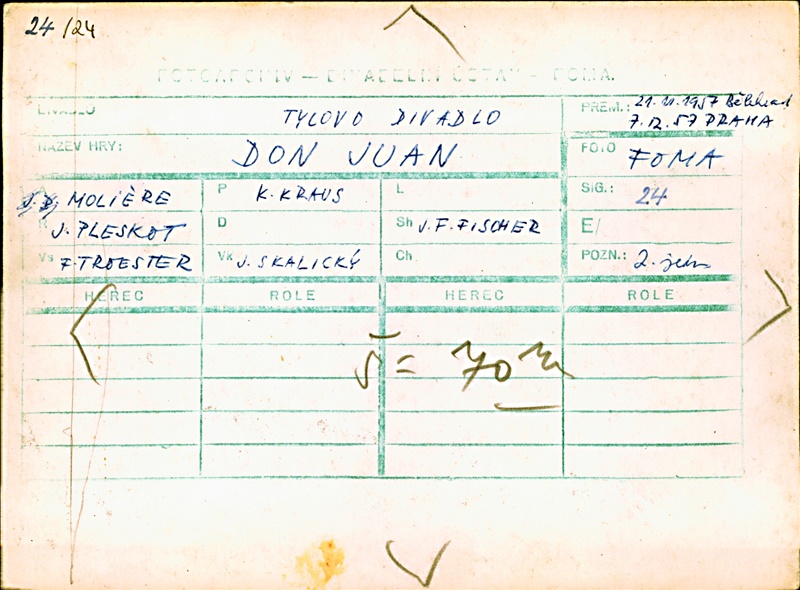 24/24
FOTOARCHIV — DIVADELNÍ ÚSTAV - FOMA.
DIVADLO TYLOVO DIVADLO PREM.: 21.11.1957 Bělehrad
7.12.57 PRAHA
NÁZEV HRY: DON JUAN FOTO FOMA
A MOLIÈRE P K. KRAUS L SIG.: 24
R J. PLESKOT D Sh J. F. FISCHER E/
Vs F. TROESTER Vk J. SKALICKÝ Ch POZN.: 2. jedn
HEREC ROLE HEREC ROLE
š = 70